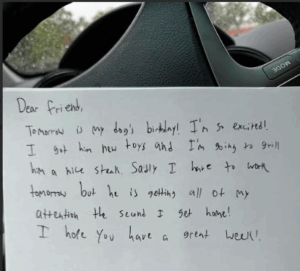 MODE
Dear friend,
Tomorrow is my dog's birthday! I'm so excited!
I got him new toys and I'm going to grill
him a nice steak. Sadly I have to work
tomorrow but he is getting all of my
attention the second I get home!
I hope you have a great week!